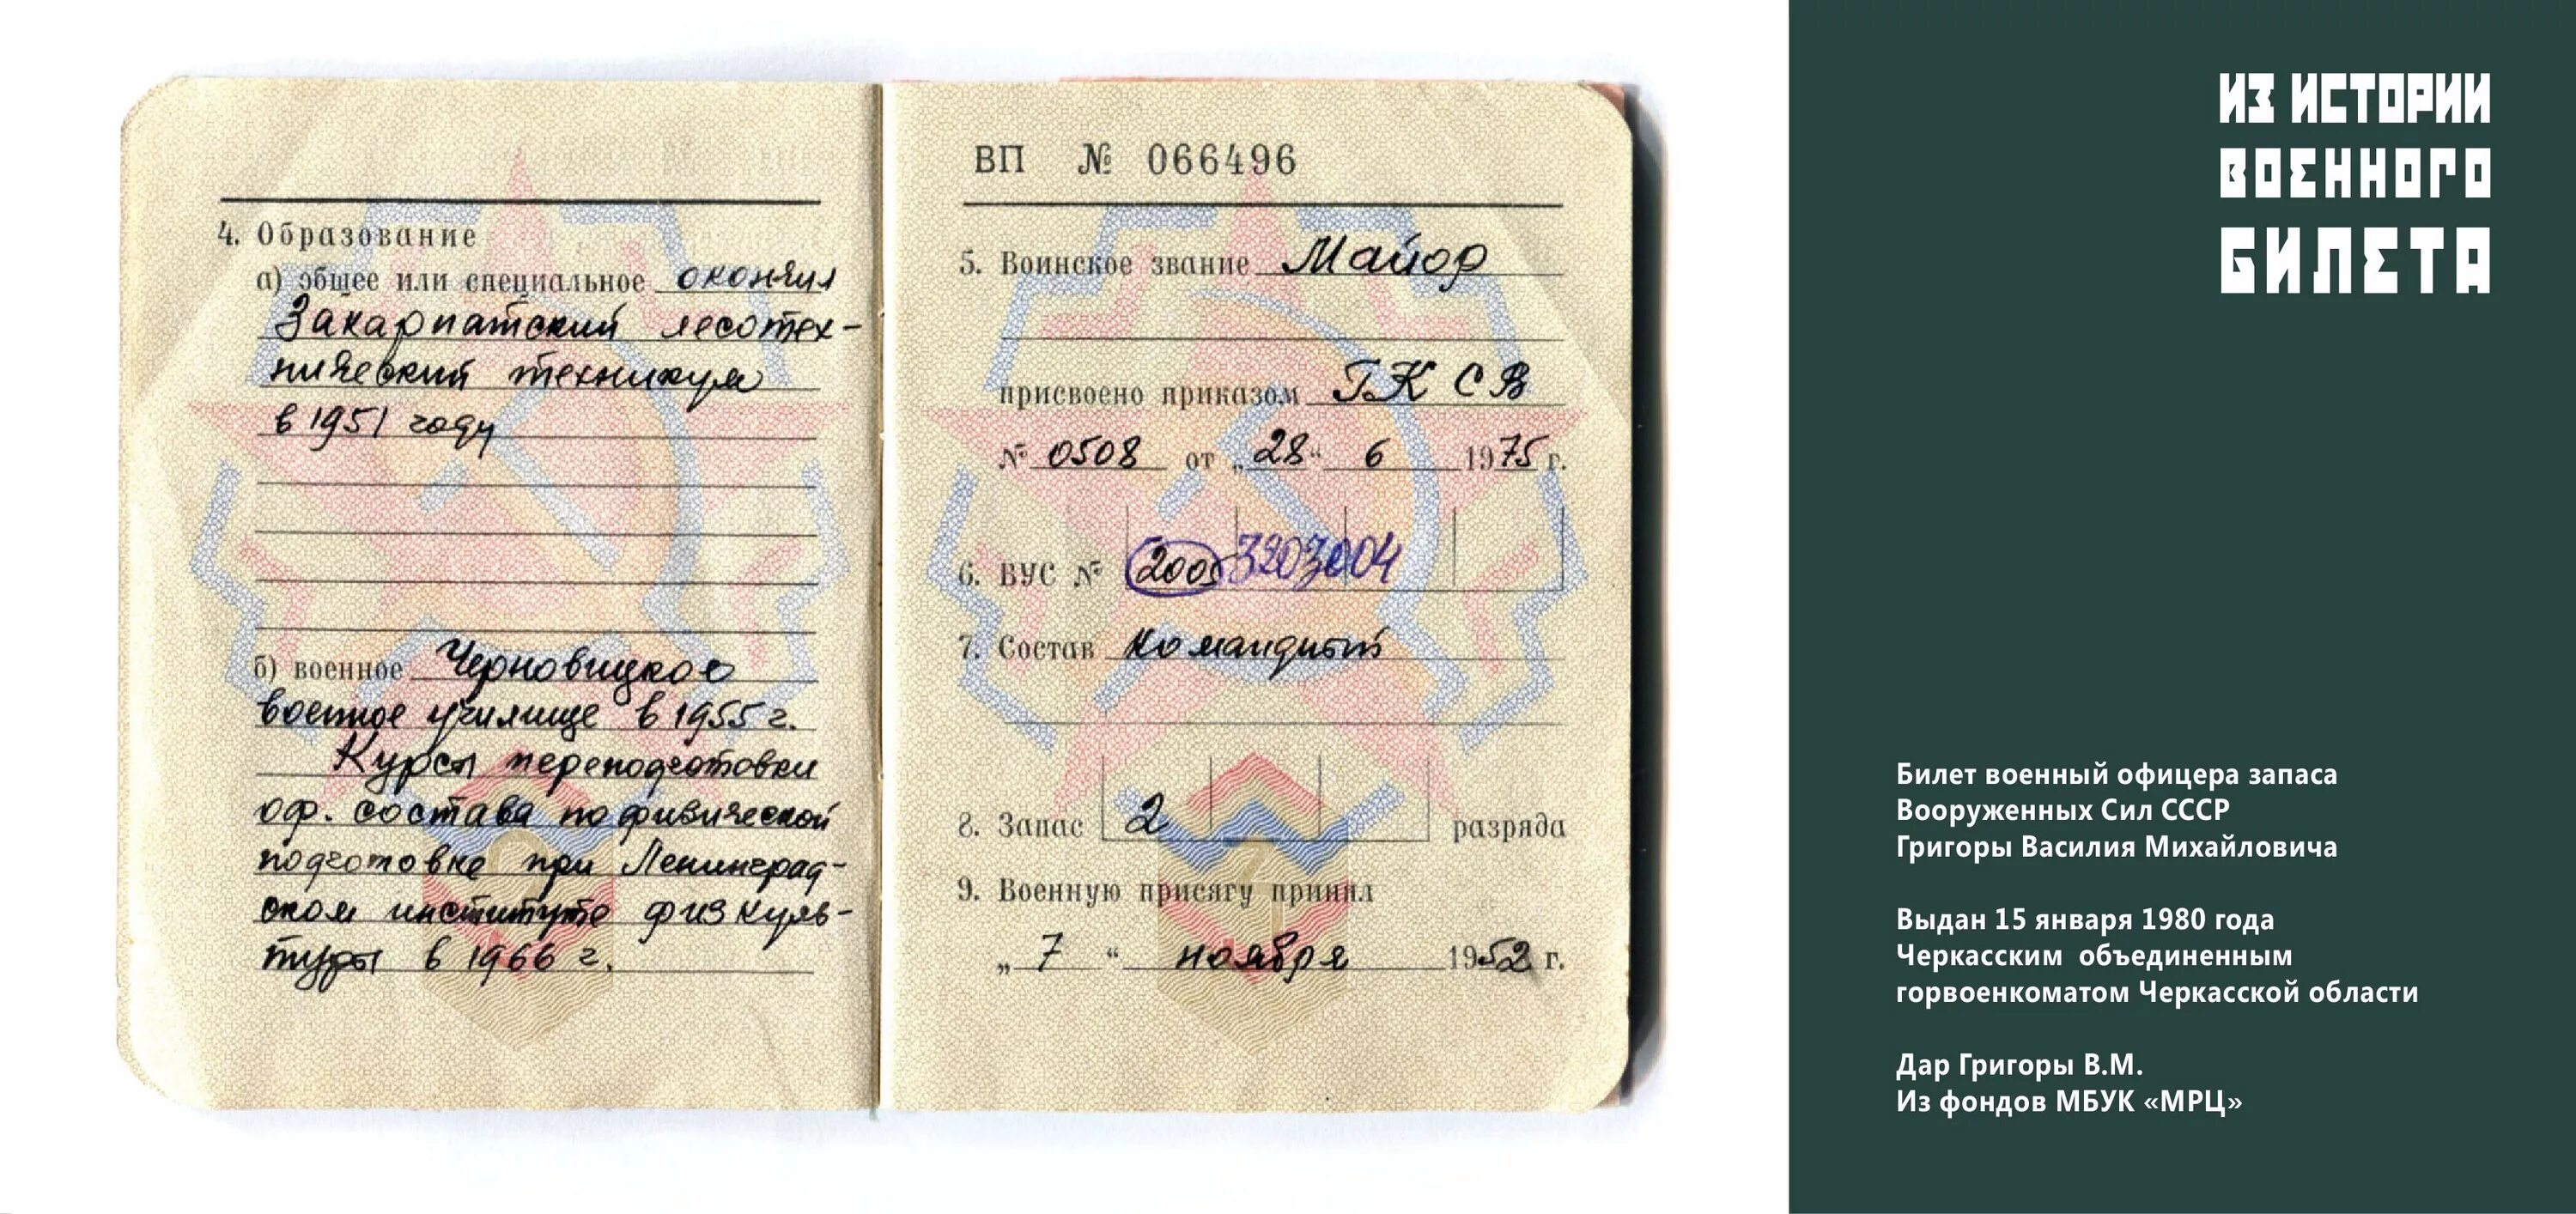 4. Образование
а) общее или специальное окончил
Закарпатский лесотех-
нический техникум
в 1951 году
б) военное Черновицкое
военное училище в 1955 г.
Курсы переподготовки
оф. состава по физической
подготовке при Ленинград-
ском институте физкуль-
туры в 1966 г.
ВП № 066496
5. Воинское звание Майор
присвоено приказом ГК СВ
№ 0508 от „28“ 6 1975 г.
6. ВУС № 2005 3203004
7. Состав командный
8. Запас 2 разряда
9. Военную присягу принял
„7“ ноября 1952 г.
ИЗ ИСТОРИИ
ВОЕННОГО
БИЛЕТА
Билет военный офицера запаса
Вооруженных Сил СССР
Григоры Василия Михайловича
Выдан 15 января 1980 года
Черкасским объединенным
горвоенкоматом Черкасской области
Дар Григоры В.М.
Из фондов МБУК «МРЦ»